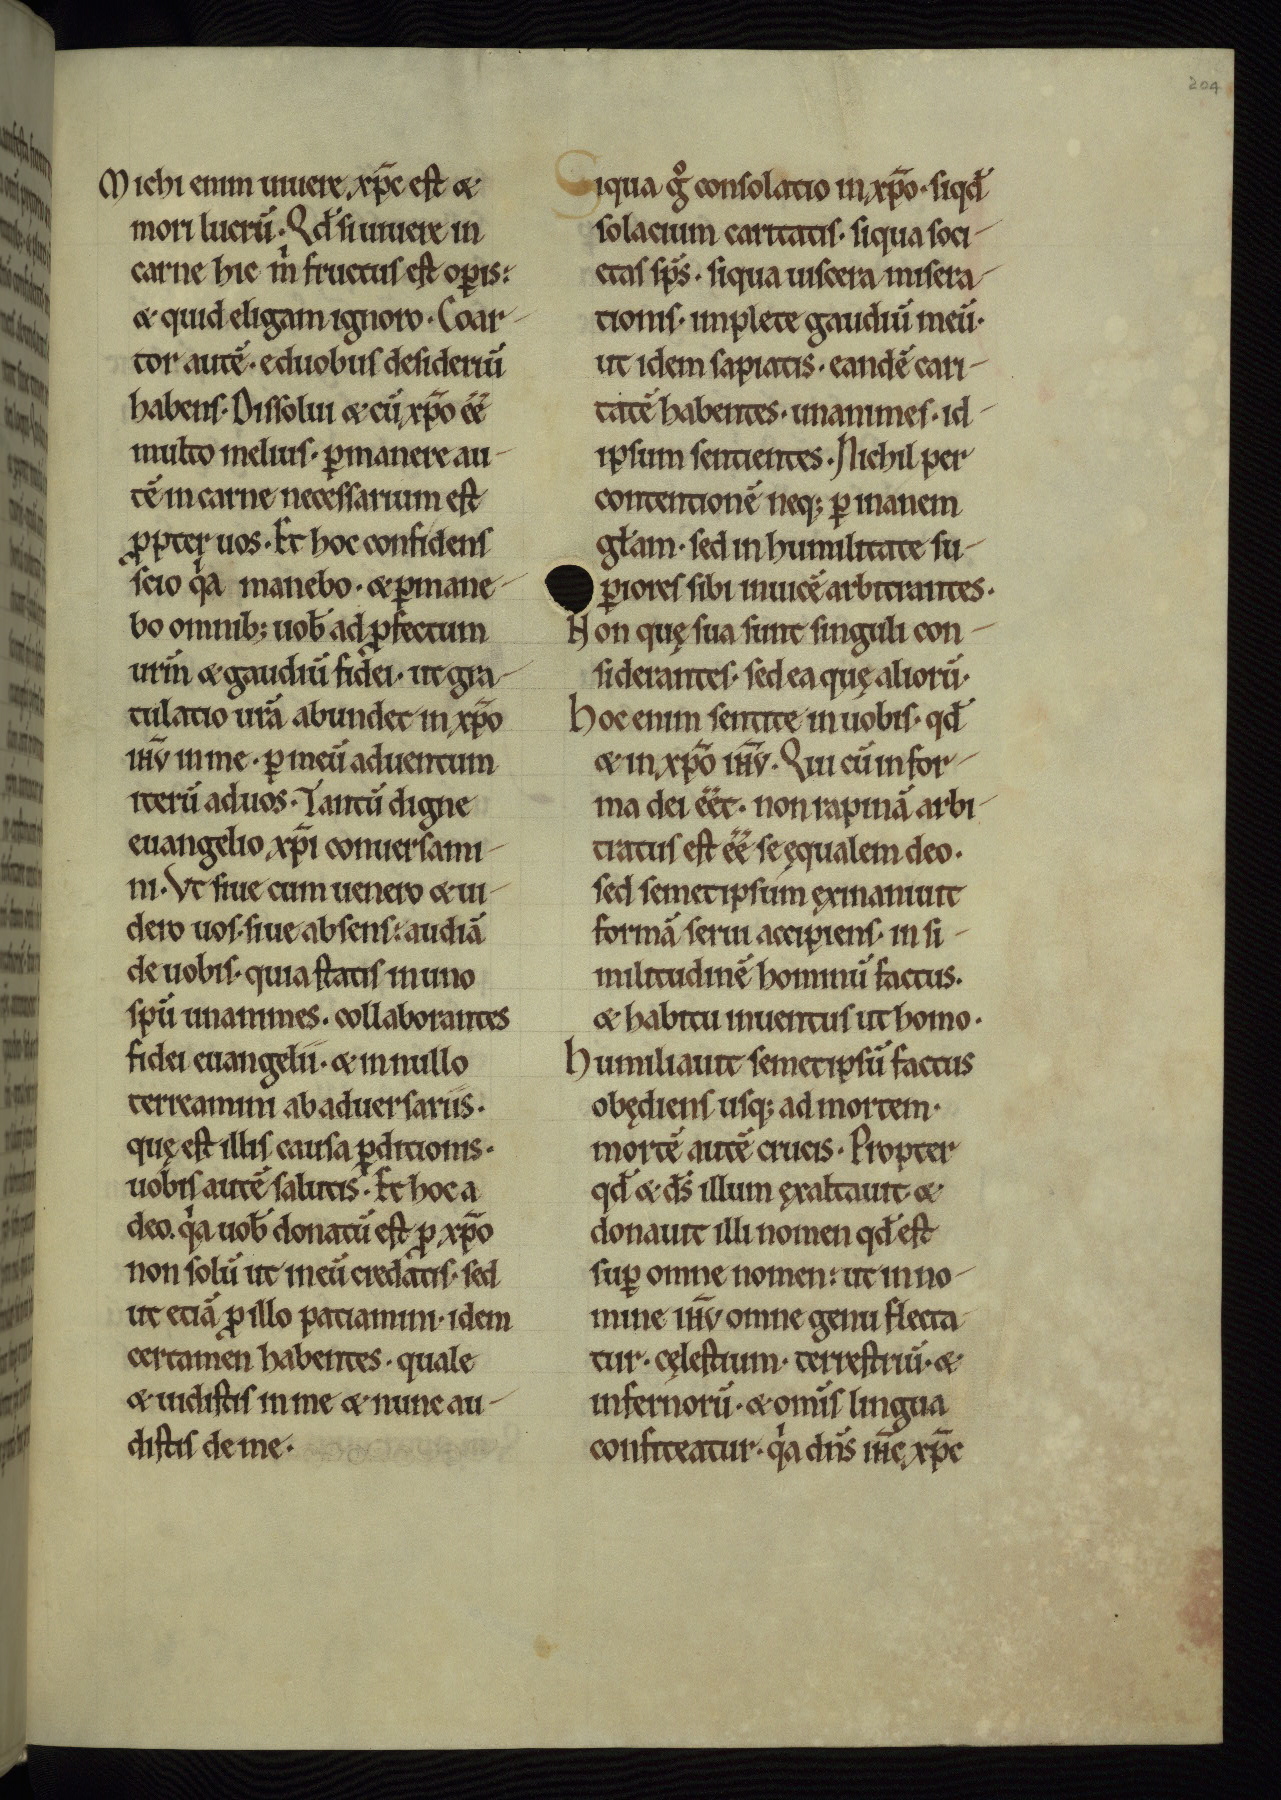 204
Michi enim uiuere xp̄c est &
mori lucrū. Qd̄ si uiuere in
carne hic m̍ fructus est oꝑis:
& quid eligam ignoro. Coar-
tor autē. e duobus desideriū
habens. Dissolui & cū xp̄o ēē
multo melius. ꝑmanere au-
tē in carne necessarium est
ꝓpter uos. Et hoc confidens
scio qͥa manebo. & ꝑmane-
bo omnib; uob̄ ad ꝓfectum
ur̄m & gaudiū fidei. ut gra-
tulatio ur̄a abundet in xp̄o
ih̄v in me. ꝑ meū aduentum
iterū ad uos. Tantū digne
euangelio xp̄i conuersami-
ni. Vt siue cum uenero & ui-
dero uos. siue absens: audiā
de uobis. quia statis in uno
sp̄u unanimes. collaborantes
fidei euangelii. & in nullo
terreamini ab aduersariis.
quę est illis causa ꝑditionis.
uobis autē salutis. Et hoc a
deo. qͥa uob̄ donatū est ꝓ xp̄o
non solū ut in eū credatis. sed
ut etiā ꝓ illo patiamini. idem
certamen habentes. quale
& uidistis in me & nunc au-
distis de me.
Siqua gͦ consolatio in xp̄o. siqd̄
solacium caritatis. siqua soci-
etas sp̄s. siqua uiscera misera-
tionis. implete gaudiū meū.
ut idem sapiatis. eandē cari-
tatē habentes. unanimes. id-
ipsum sentientes. Nichil per
contentionē neq; ꝑ inanem
gl̄am. sed in humilitate su-
ꝑiores sibi inuicē arbitrantes.
Non quę sua sunt singuli con-
siderantes. sed ea quę aliorū.
Hoc enim sentite in uobis. qd̄
& in xp̄o ih̄v. Qui cū in for-
ma dei ēēt. non rapinā arbi-
tratus est ēē se ęqualem deo.
sed semetipsum exinaniuit
formā serui accipiens. in si-
militudinē hominū factus.
& habitu inuentus ut homo.
Humiliauit semetipsū factus
obędiens usq; ad mortem.
mortē autē crucis. Propter
qd̄ & d̄s illum ęxaltauit &
donauit illi nomen qd̄ est
suꝑ omne nomen: ut in no-
mine ih̄v omne genu flecta-
tur. cęlestium. terrestriū. &
infernorū. & om̄is lingua
confiteatur. qͥa dn̄s ih̄c xp̄c